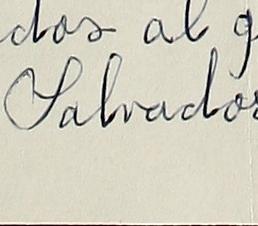 dos al g
Salvador